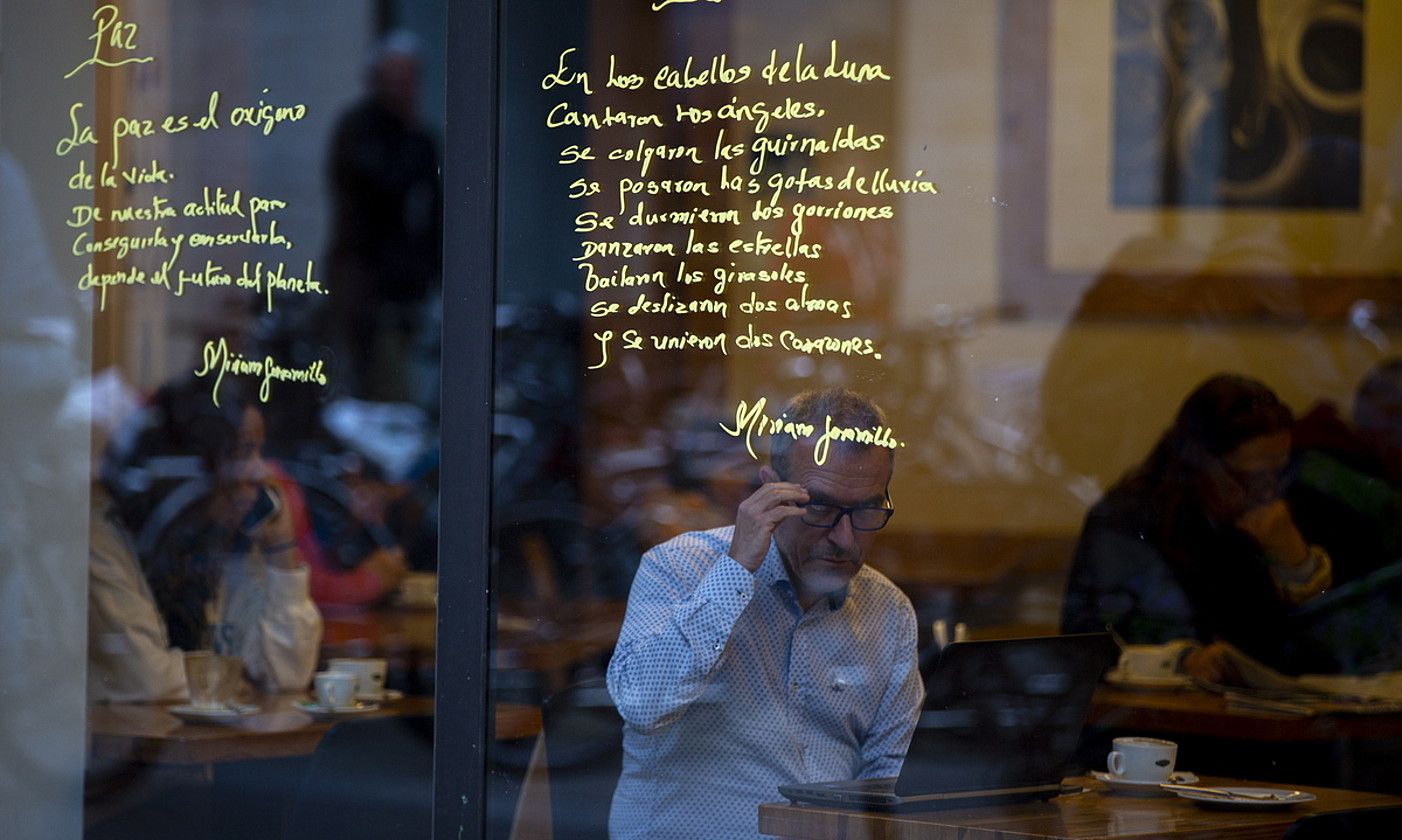 Paz
La paz es el oxígeno
de la vida.
De nuestra actitud para
Conseguirla y conservarla,
depende el futuro del planeta.
Miriam Jaramillo
En los cabellos de la luna
Cantaron los ángeles.
Se colgaron las guirnaldas
Se posaron las gotas de lluvia
Se durmieron los gorriones
Danzaron las estrellas
Bailaron los girasoles
Se deslizaron dos almas
Y se unieron dos corazones.
Miriam Jaramillo.